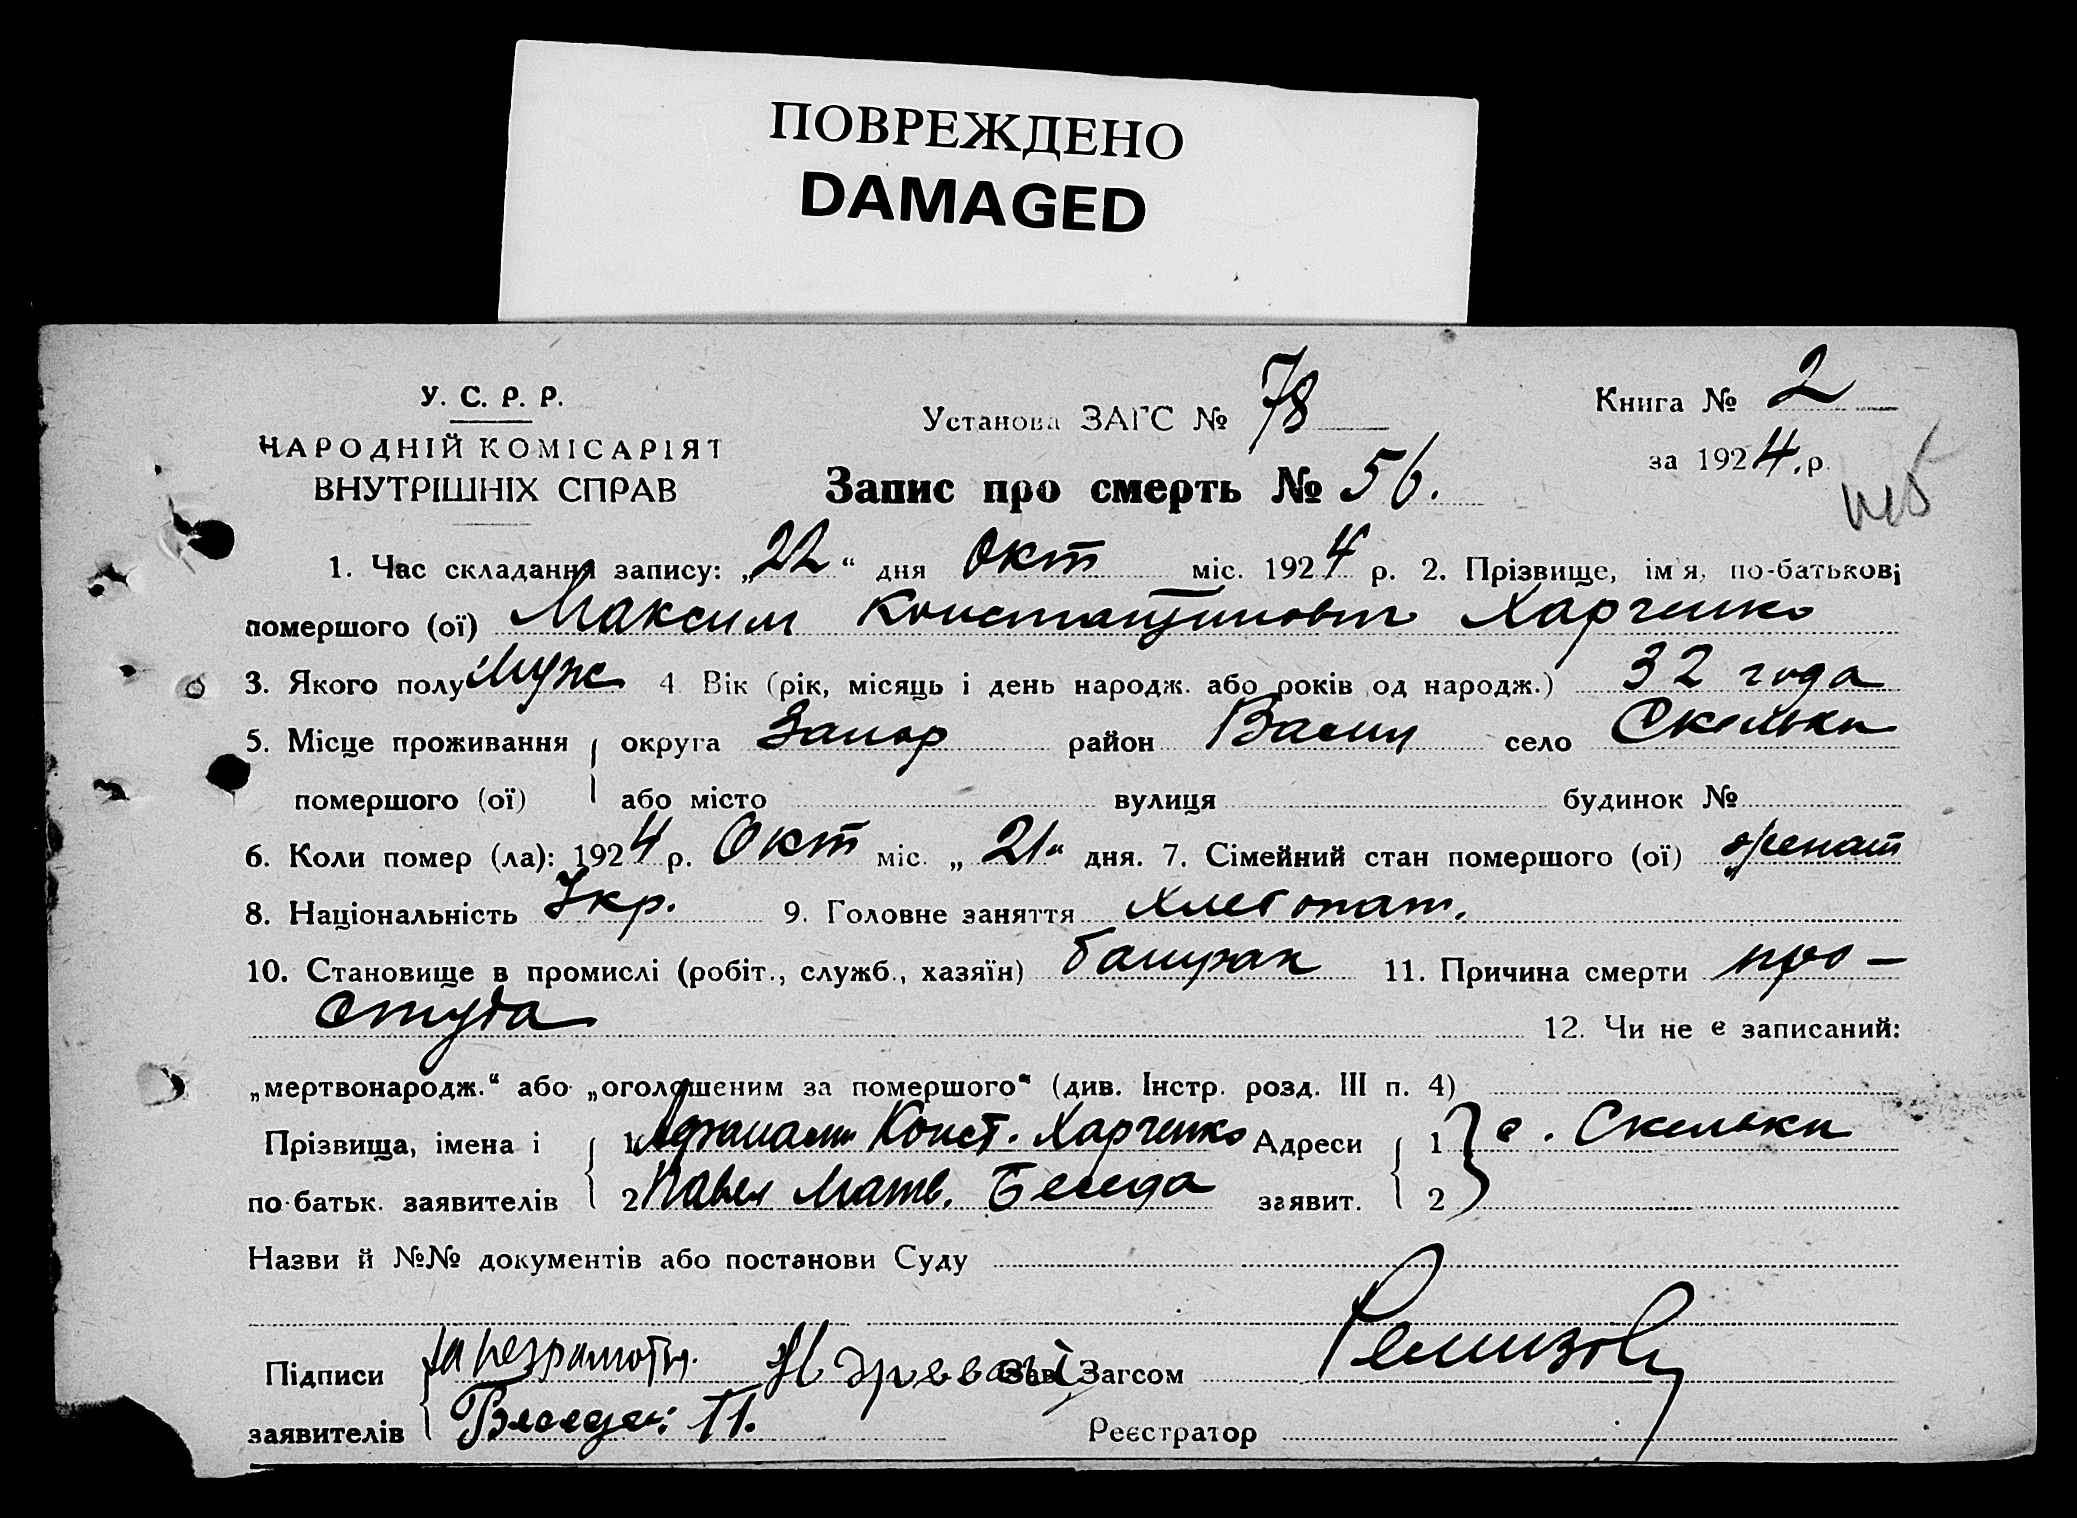 ПОВРЕЖДЕНО
DAMAGED
У. С. Р. Р.
НАРОДНІЙ КОМІСАРІЯТ
ВНУТРІШНІХ СПРАВ
Установа ЗАГС № 78
Книга № 2
за 1924 р.
Запис про смерть № 56.
1. Час складання запису: „22“ дня Окт міс. 1924 р. 2. Прізвище, ім'я, по-батькові
помершого (ої) Максим Константинович Харченко
3. Якого полу Муж 4 Вік (рік, місяць і день народж. або років од народж.) 32 года
5. Місце проживання округа Запор район Васил село Скельки
помершого (ої) або місто вулиця будинок №
6. Коли помер (ла): 1924 р. Окт міс. „21“ дня. 7. Сімейний стан помершого (ої) женат
8. Національність Укр. 9. Головне заняття хлебопаш.
10. Становище в промислі (робіт., служб., хазяїн) 11. Причина смерти про-
студа 12. Чи не є записаний:
„мертвонародж.“ або „оголошеним за помершого“ (див. Інстр. розд. III п. 4)
Прізвища, імена і 1 Афанасий Конст. Харченко Адреси 1 с. Скельки
по-батьк. заявителів 2 Павел Матв. Беседа заявит. 2
Назви й №№ документів або постанови Суду
Підписи за неграмотн. Зав. Загсом Ремизов
заявителів П. Реєстратор